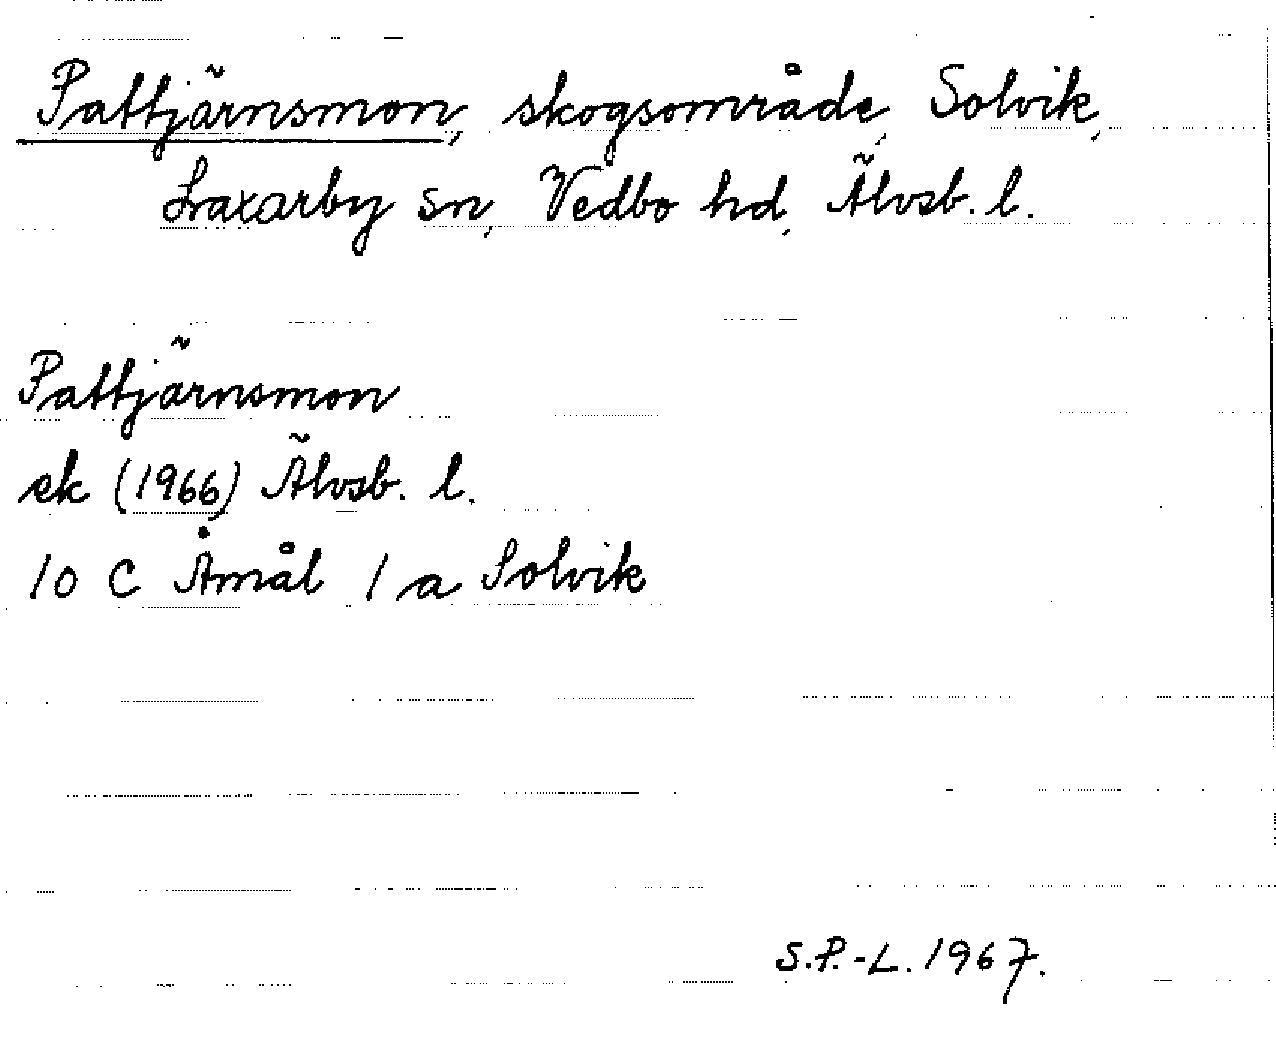 Pattjärnsmon, skogsområde, Solvik,
Laxarby sn, Vedbo hd, Älvsb. l.
Pattjärnsmon
ek (1966) Älvsb. l.
10 C Åmål 1 a Solvik
S.P.-L. 1967.